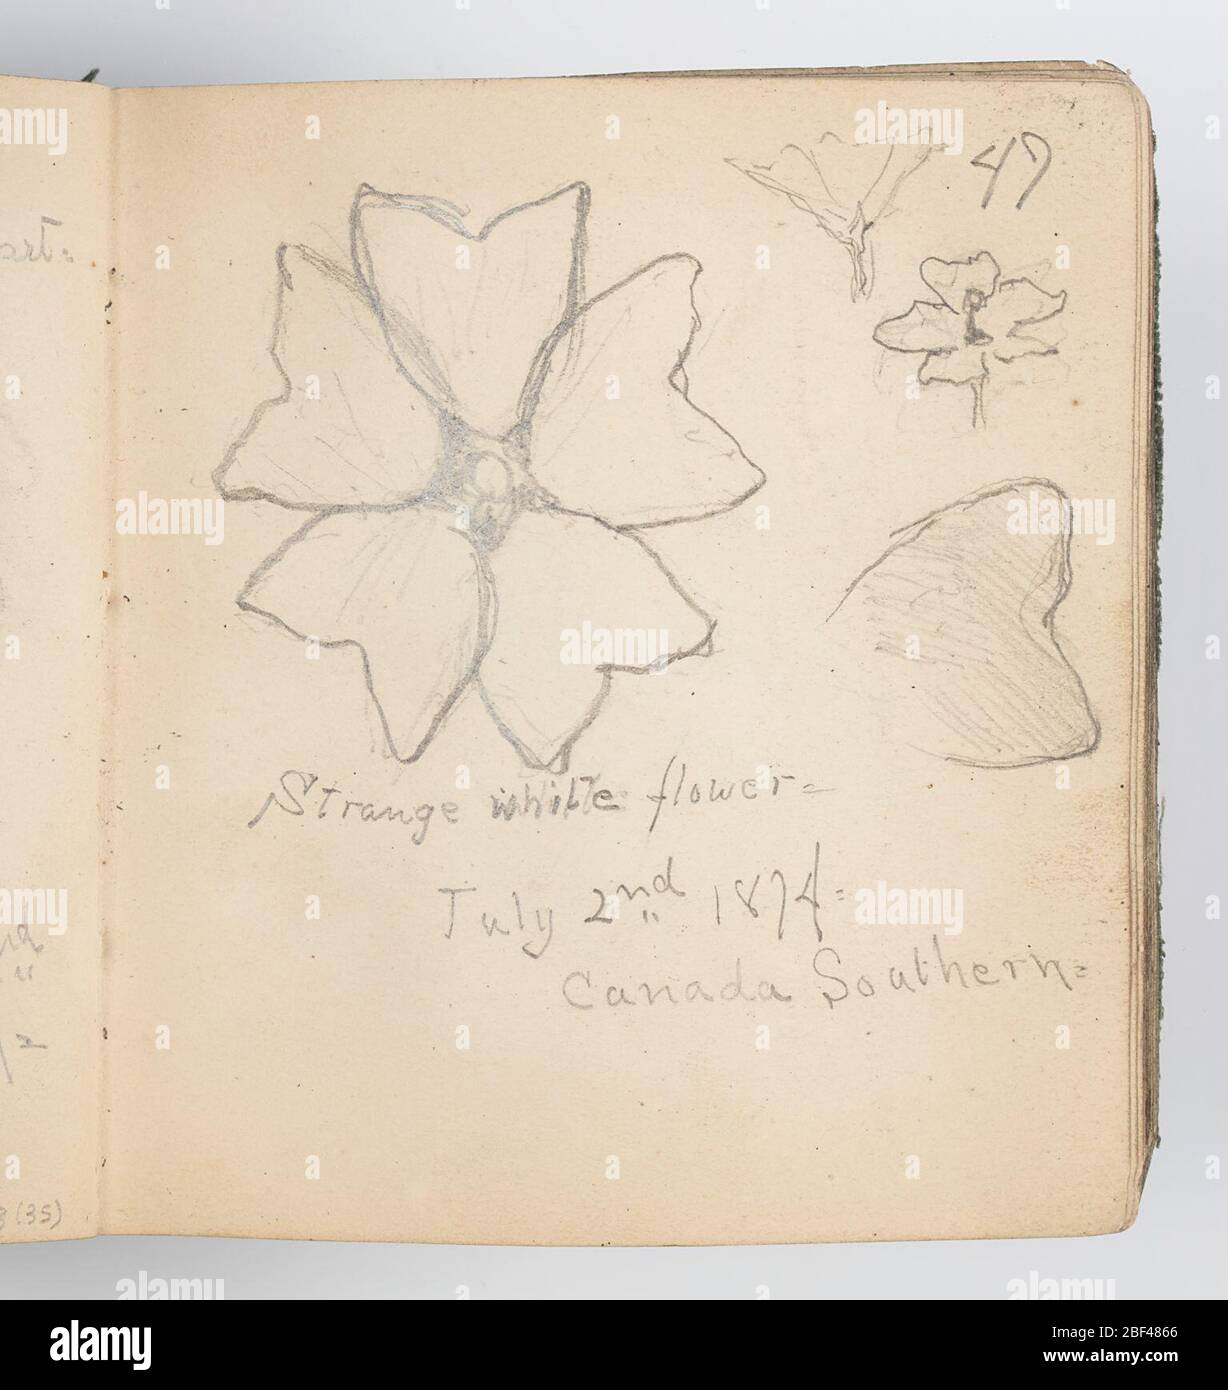 47
art=
Strange white flower=
July 2nd 1874=
Canada Southern=
(35)
alamy
Image ID: 2BF4866
www.alamy.com